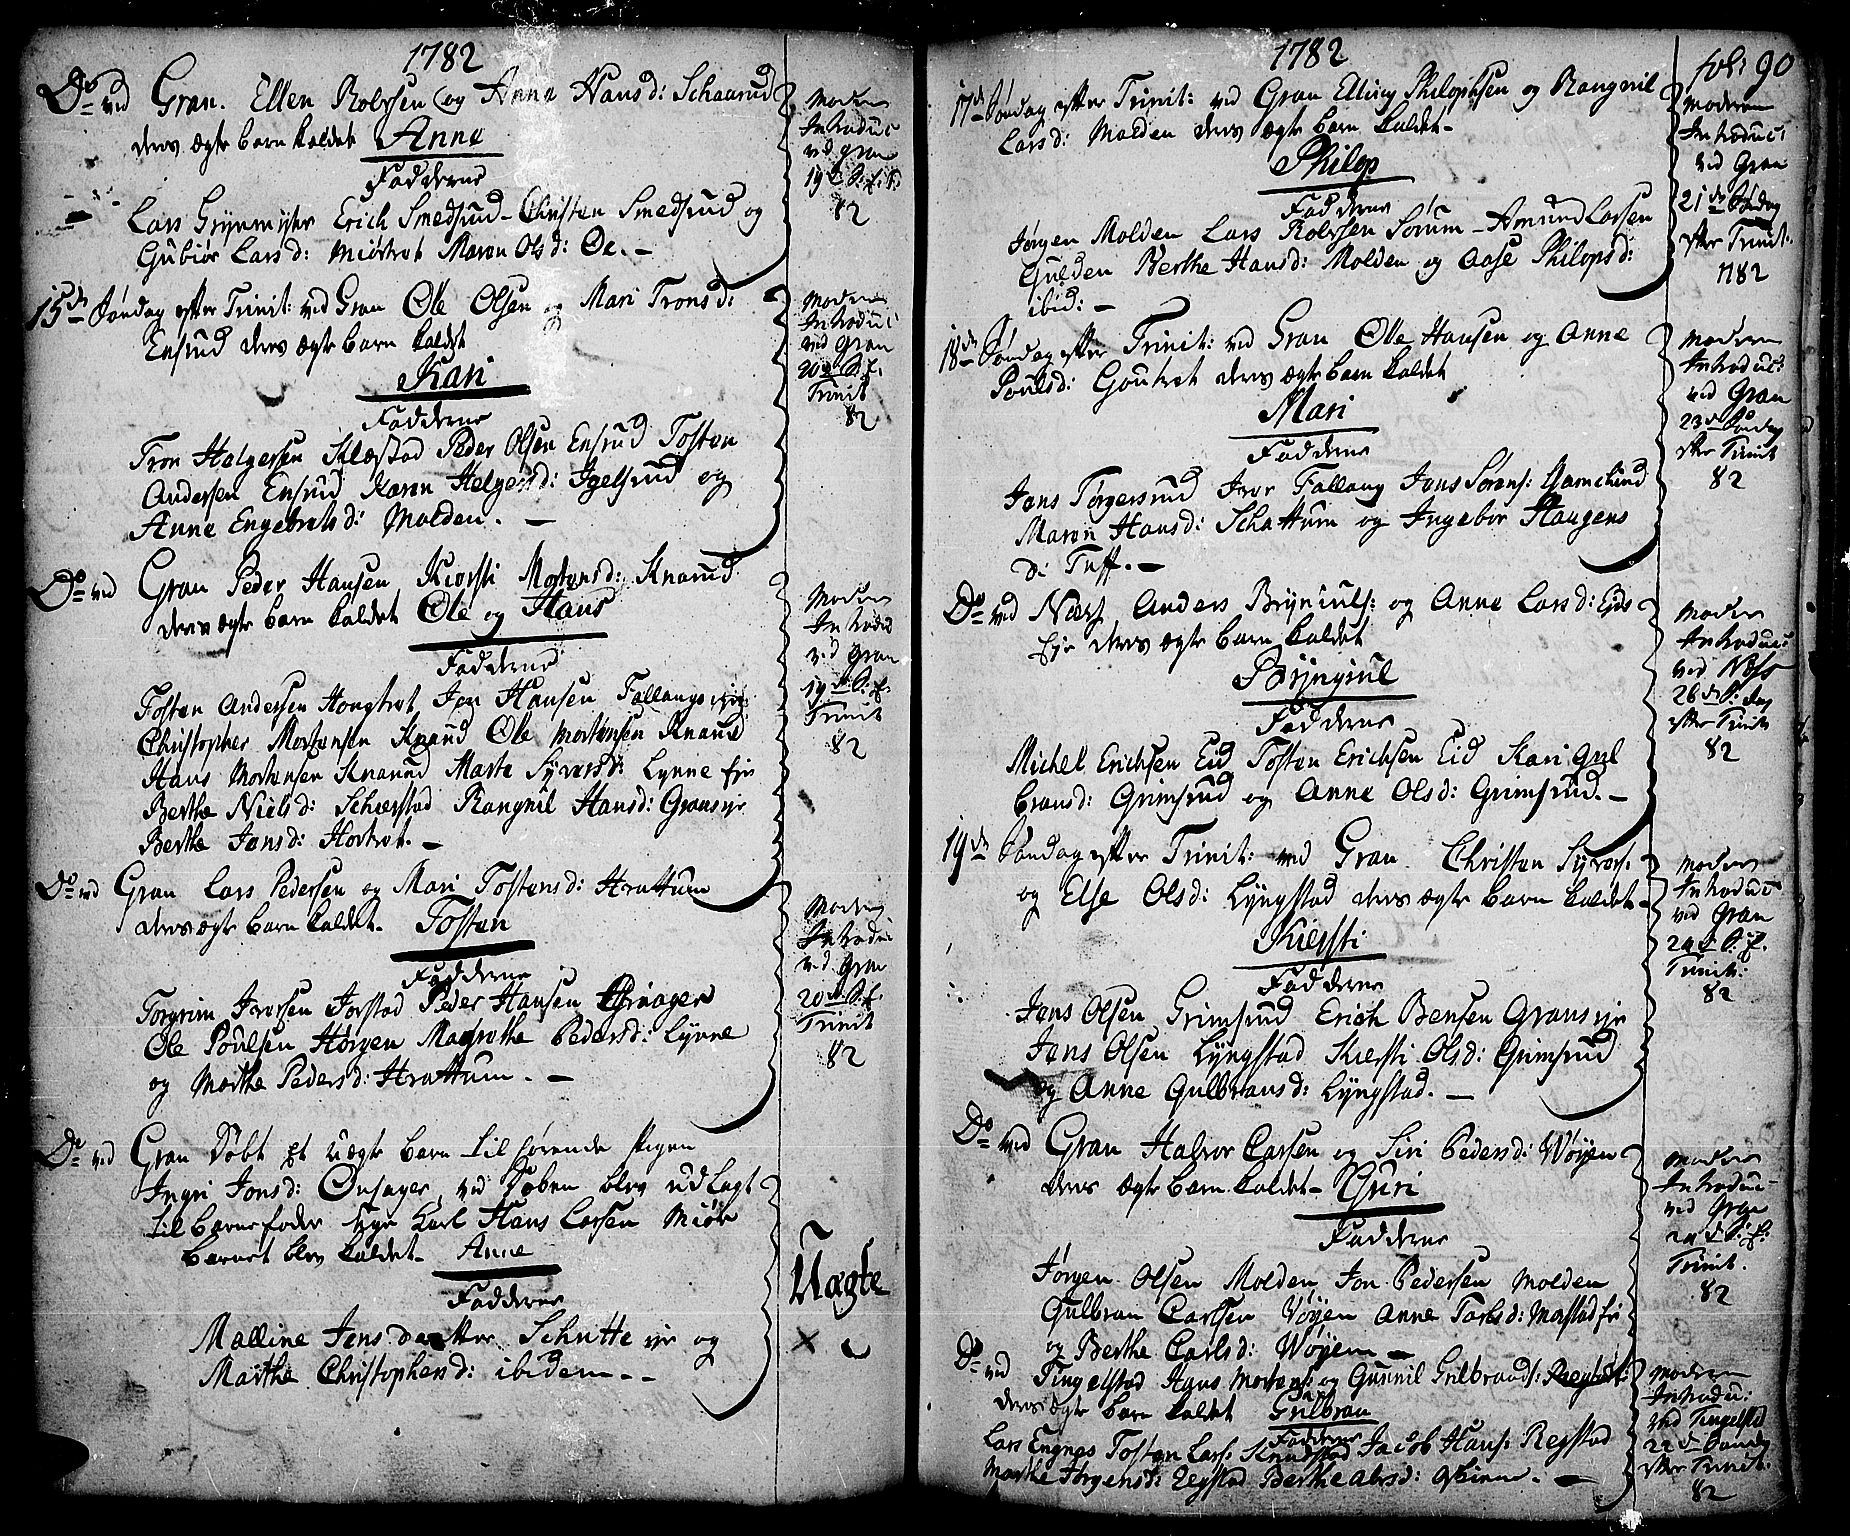 1782
Do ved Gran. Ellen Robersen og Anne Hansd: Schaarud
deres ægte barn kaldet Anne
Fadderne
Lars Grynmyhr Erich Smedsrud Christen Smedsrud og
Gubiør Larsd: Maren Olsd: Oe. -
Moderen
Introduc:
ved Gran
19de S: f: T:
82
15de Søndag efter Trinit: ved Gran Ole Olsen og Mari Tronsd:
Ensrud deres ægte barn kaldet
Kari
Fadderne
Tron Helgesen Klæstad Peder Olsen Ensrud Tosten
Andersen Ensrud Karen Helgesd: Igelsrud og
Anne Engebretsd: Molden. -
Moderen
Introduc:
ved Gran
20de S: f:
Trinit
82
Do ved Gran Peder Hansen Kiersti Mortensd: Knarud
deres ægte barn kaldet Ole og Hans
Fadderne
Tosten Andersen Jon Hansen Fallangs
Christopher Mortensen Knarud Ole Mortensen Knarud
Hans Mortensen Knarud Marte Syversd: Lynne
Berthe Nielsd: Schierstad Rangnil Hansd: Granseje
Berthe Jensd: -
Moderen
Introduc
ved Gran
19de S: f:
Trinit
82
Do ved Gran Lars Pedersen og Mari Tostensd: Hrattum
deres ægte barn kaldet. Tosten
Fadderne
Torgrim Iversen Jorstad Peder Hansen
Ole Poulsen Horgen Magrethe Pedersd: Lynne
og Marthe Pedersd: Hrattum. -
Moderen
Introdu:
ved Gran
20de S: f:
Trinit
82
Do ved Gran Døbt et uægte barn tilhørende Pigen
Ingri Jonsd: Onsager, ved Døben blev udlagt
til barnefader Karl Hans Larsen Miør
barnet blev kaldet. Anne
Fadderne
Malline Jensdaatter Schutte eje og
Marthe Christophersd: ibidem. -
Uægte
1782
fol: 90
17de Søndag efter Trinit: ved Gran Elling Philopsen og Rangnil
Larsd: Molden deres ægte barn kaldet -
Philop
Fadderne
Jørgen Molden Lars Robersen Sørum - Amund Larsen
Gulden Berthe Hansd: Molden og Aase Philopsd:
ibid: -
Moderen
Introduc:
ved Gran
21de Søndag
efter Trinit:
1782
18de Søndag efter Trinit: ved Gran Ole Hansen og Anne
Poulsd: deres ægte barn kaldet
Mari
Fadderne
Jens Torgersrud Iver Fallang Jens Sørens:
Maren Hansd: Schattum og Ingebor Haagens
d: Tuff. -
Moderen
Introduc:
ved Gran
23de Søndag
efter Trinit
82
Do ved Næss Anders Brÿniuls: og Anne Larsd: Eids
eje deres ægte barn kaldet
Brÿngiul
Fadderne
Michel Erichsen Eid Tosten Erichsen Eid Kari Gul
bransd: Grimsrud og Anne Olsd: Grimsrud. -
Moderen
Introduc:
ved Næss
26de S: dag
efter Trinit
82
19de Søndag efter Trinit: ved Gran Christen Syvers:
og Else Olsd: Lyngstad deres ægte barn kaldet -
Kiersti
Fadderne
Jens Olsen Grimsrud Erich Bensen Granseje
Jens Olsen Lyngstad Kiersti Olsd: Grimsrud
og Anne Gulbransd: Lyngstad. -
Moderen
Introduc:
ved Gran
24de S: f:
Trinit:
82
Do ved Gran Halvor Carlsen og Siri Pedersd: Wøyen
deres ægte barn kaldet - Guri
Fadderne
Jørgen Olsen Molden Jon Pedersen Molden
Gulbran Carlsen Wøyen Anne Tarlsd:
og Berthe Carlsd: Wøyen -
Moderen
Introduc:
ved Gran
24de S: f:
Trinit.
82
Do ved Tingelstad Hans Mortens: og Gunnil Gulbrands: Regstad:
deres ægte barn kaldet Gulbran
Fadderne
Lars Engnes Tosten Lars: Knarstad Jacob Hans: Regstad
Marthe Jørgensd: Regstad Berthe -
Moderen
Introduc:
ved Tingelsta
22de Søndag
efter Trinit:
82